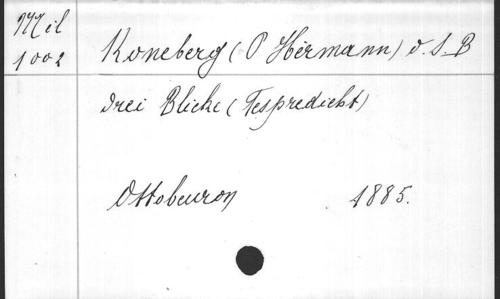 Mil
1002
Koneberg (P Hermann) O.S.B
Drei Blicke (Fespredicht)
Ottobeuron 1885.